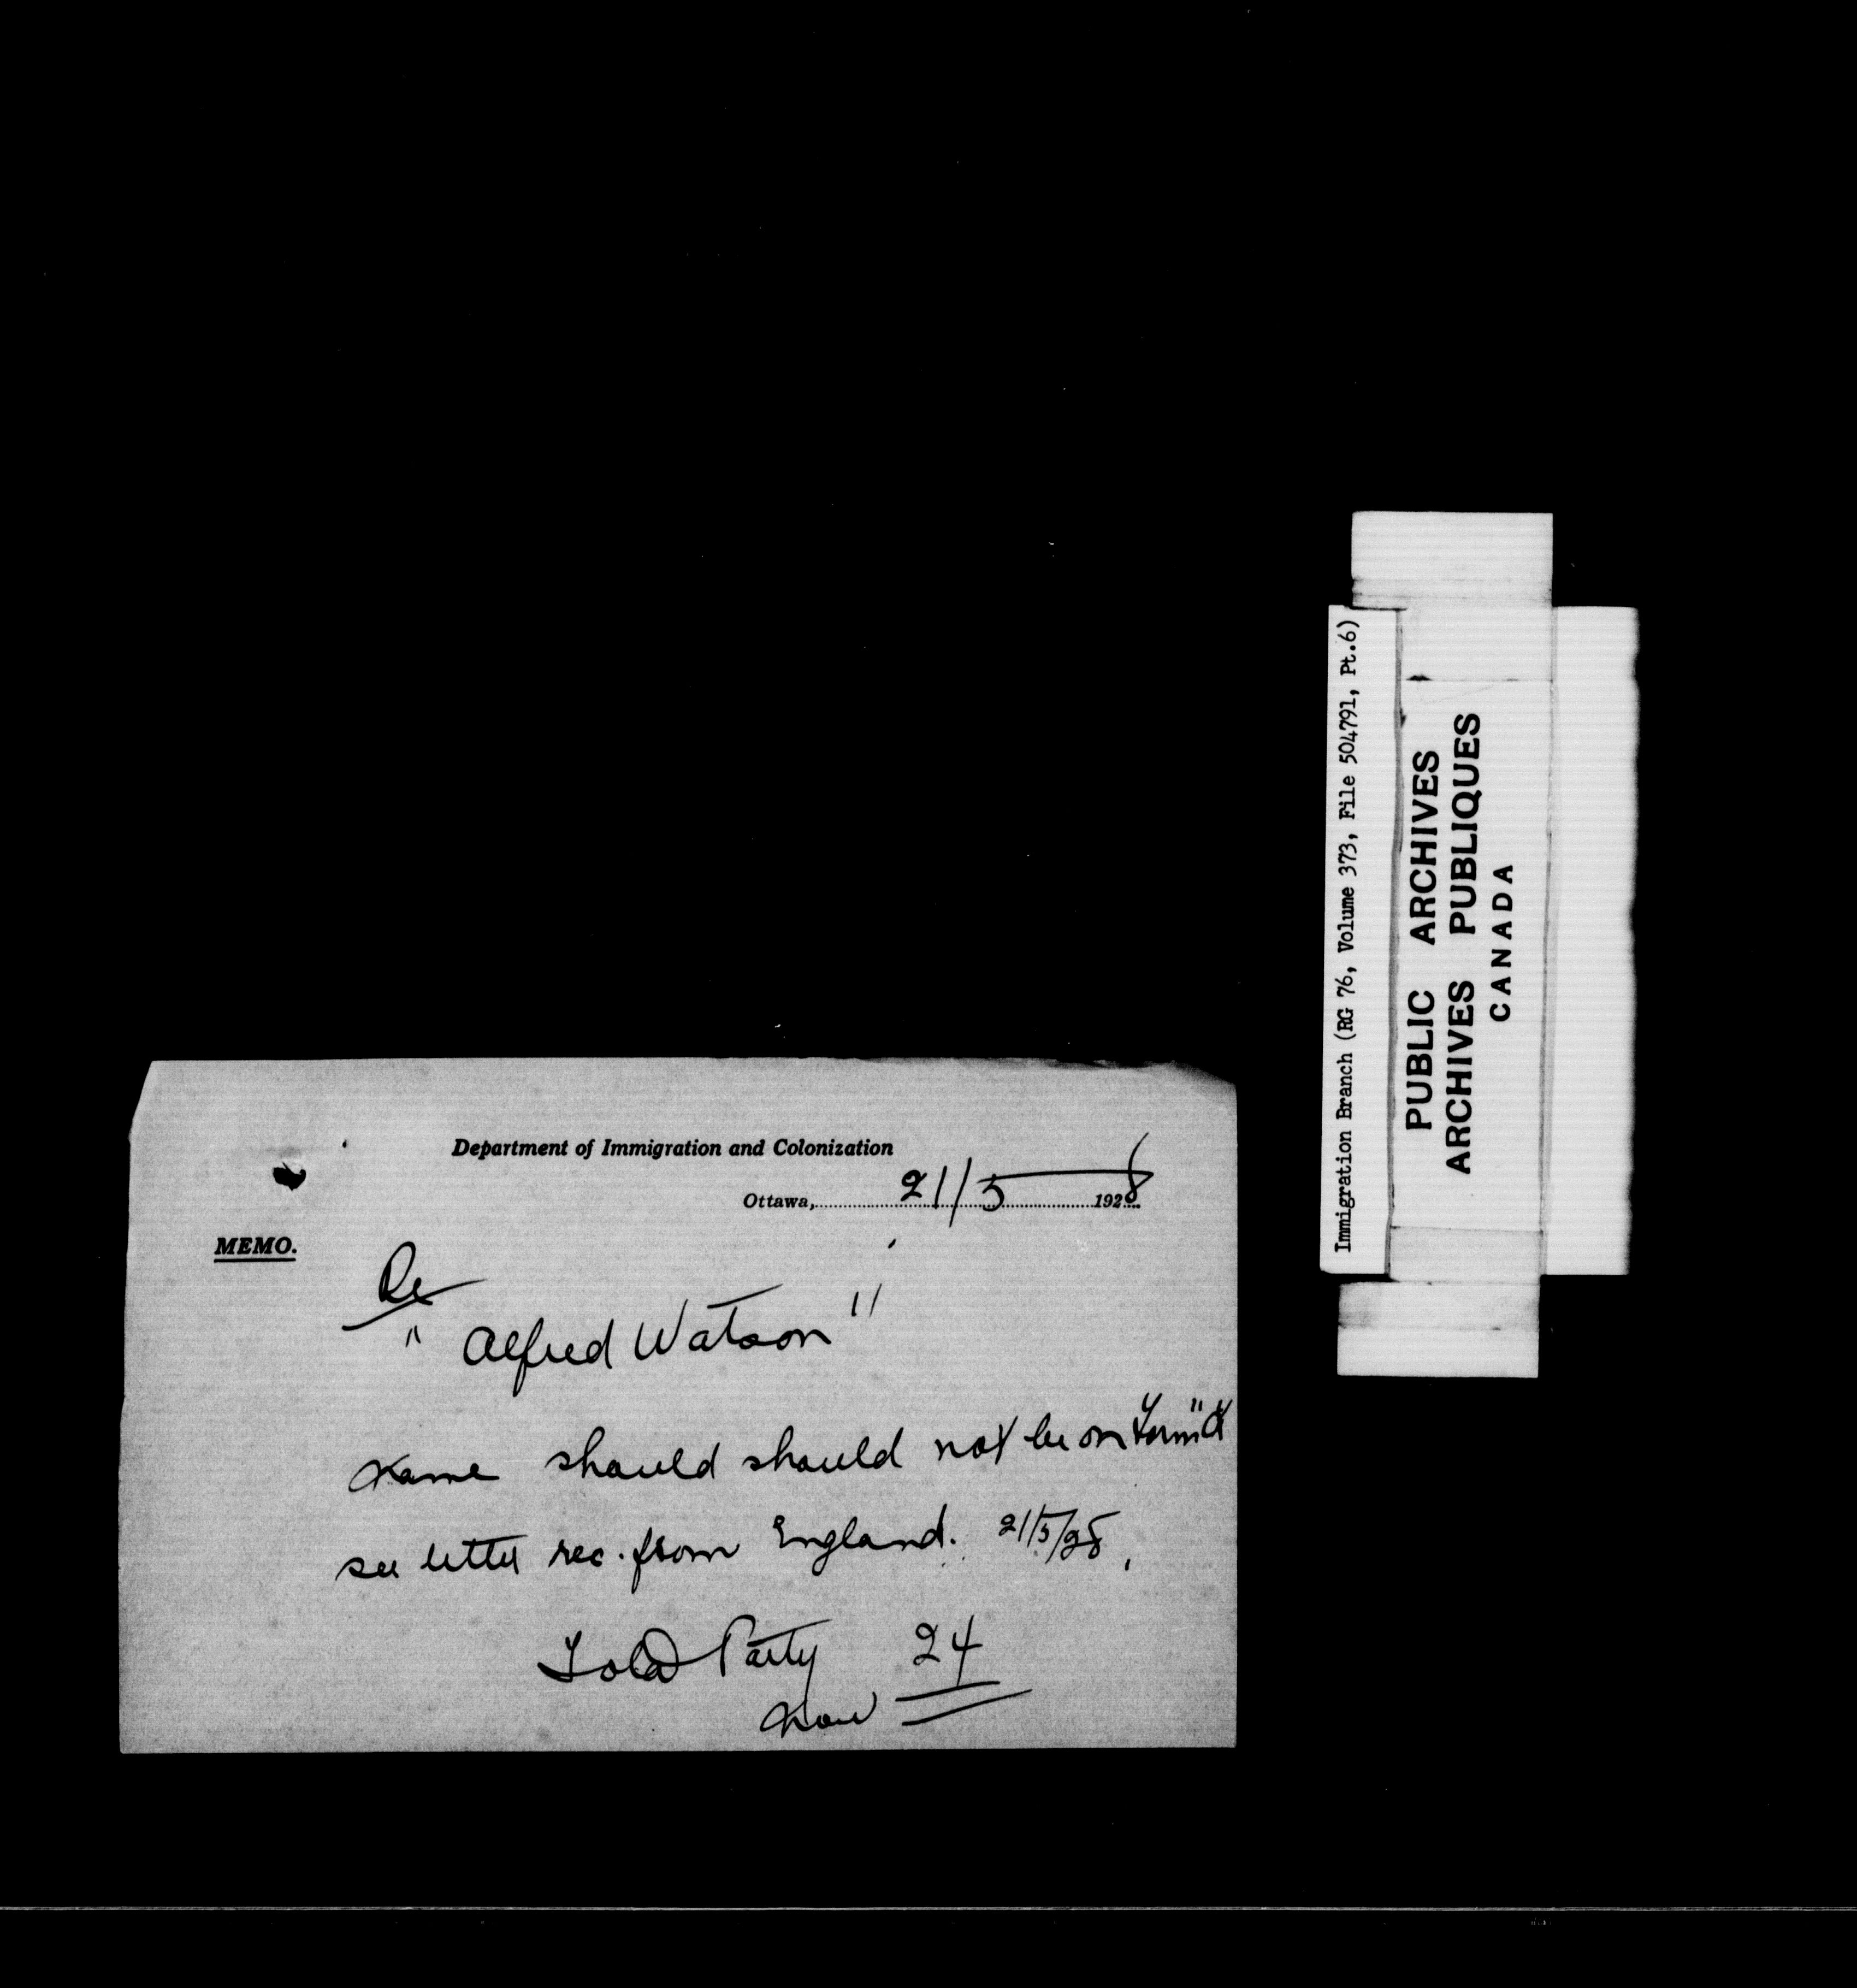 Department of Immigration and Colonization
Ottawa, 21/5 1928
MEMO.
Re
"Alfred Watson"
Name should should not be on Form "A"
see letter rec. from England. 21/5/28,
Total Party 24
now
Immigration Branch (RG 76, Volume 373, File 504791, Pt.6)
PUBLIC ARCHIVES
ARCHIVES PUBLIQUES
CANADA